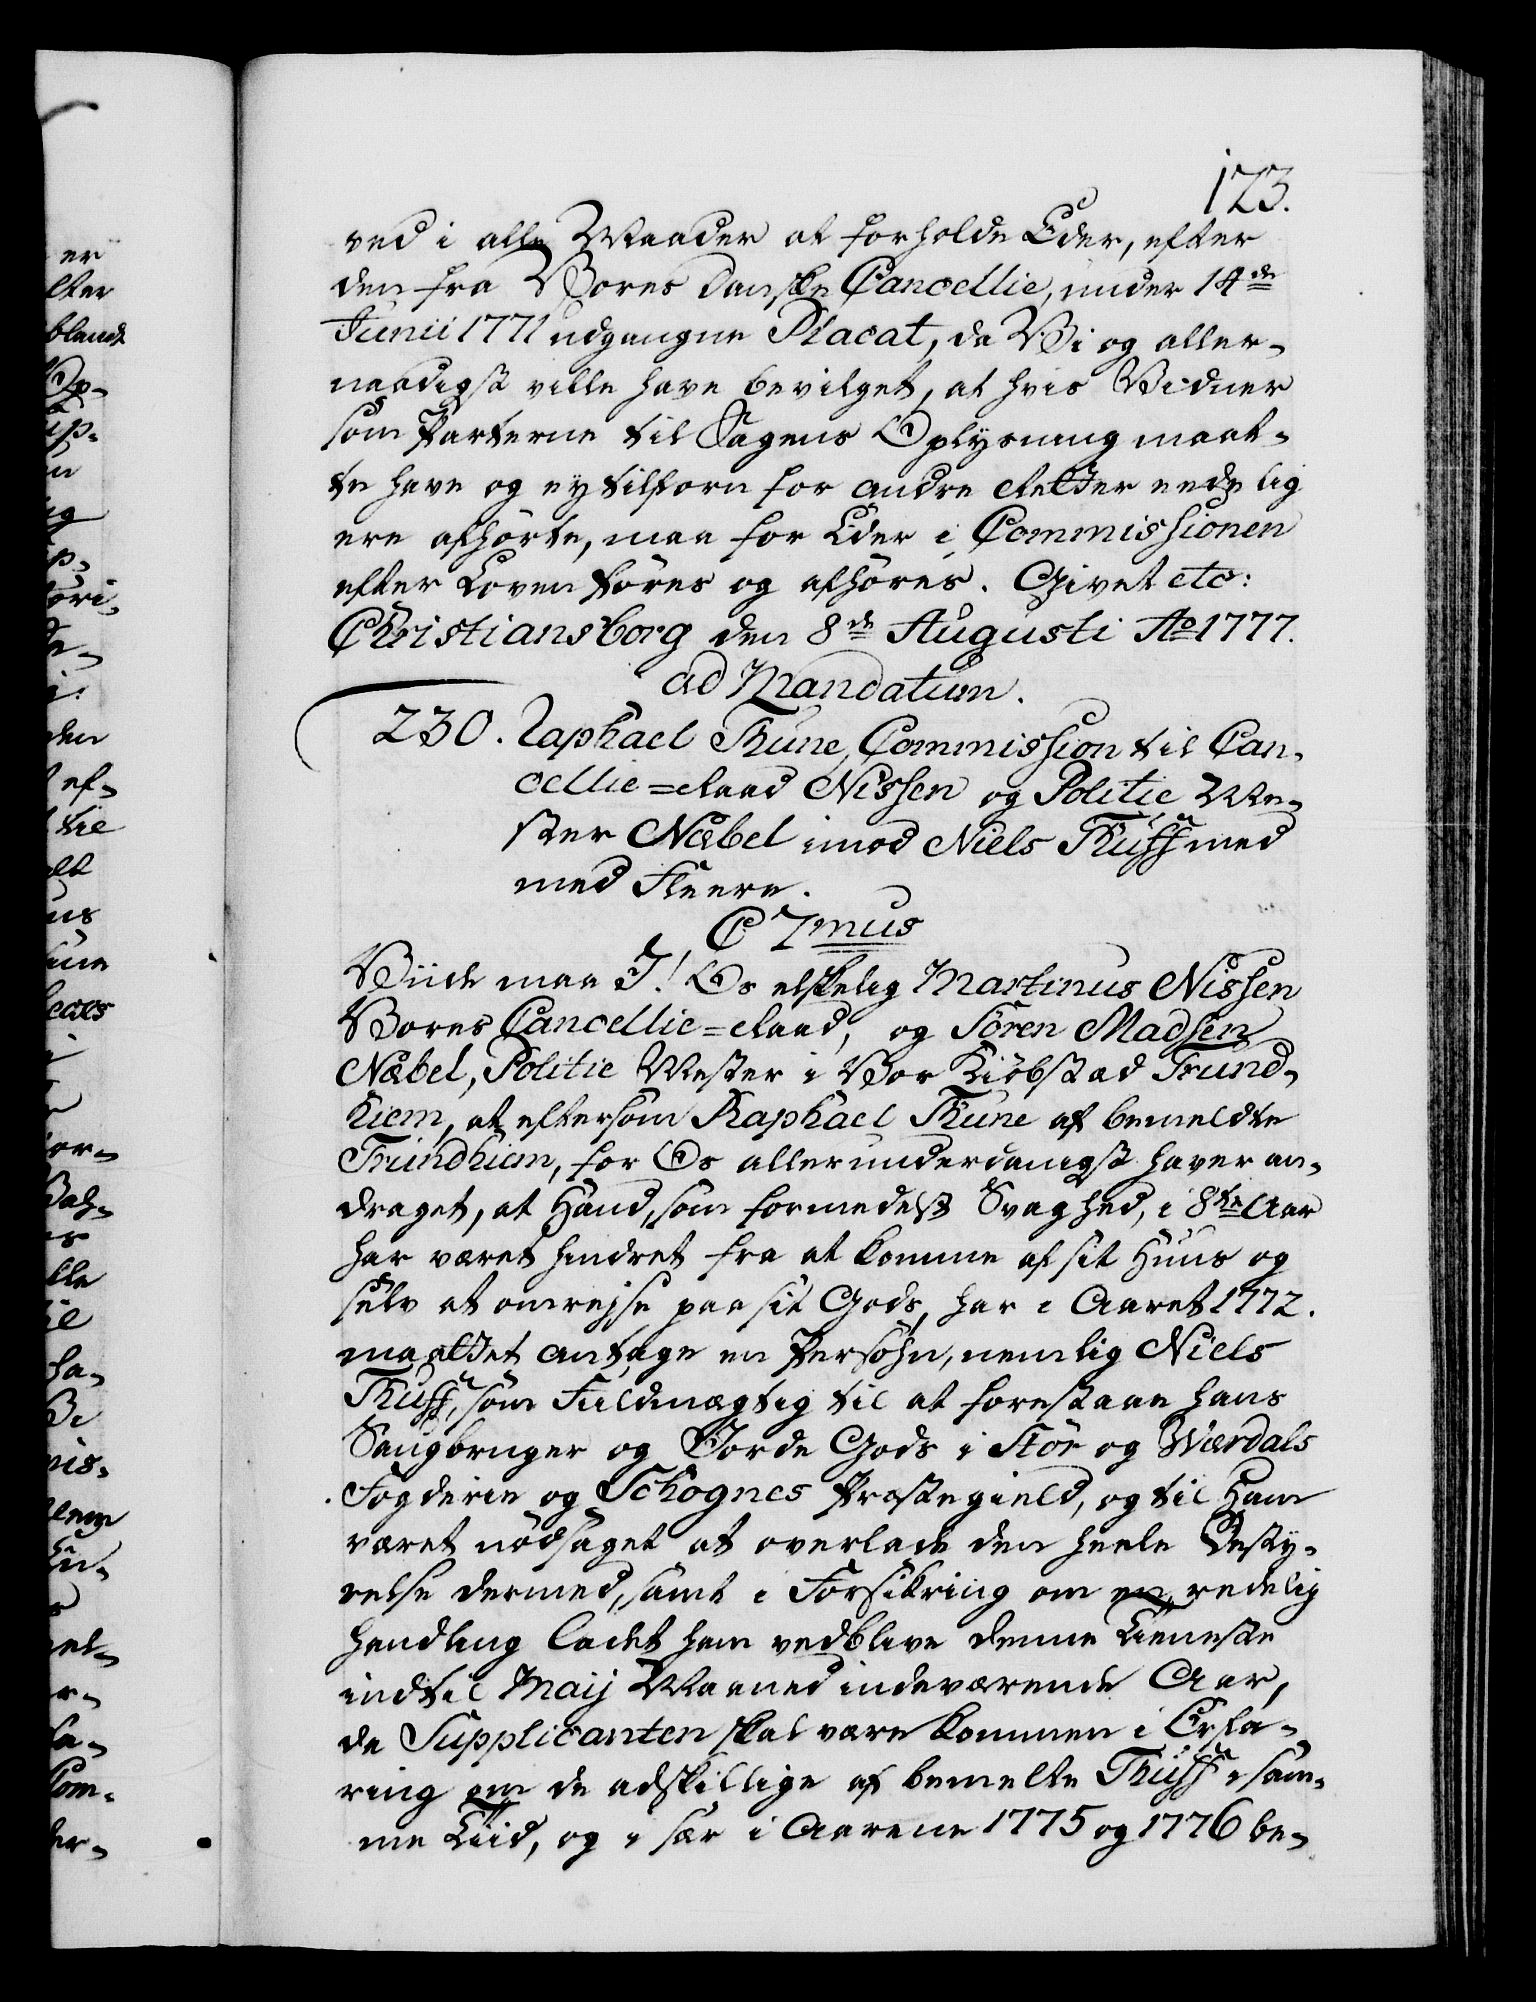 123.
ved i alle Maader at forholde Eder, efter
den fra Vores Danske Cancellie, under 14de
Junii 1771 udgangne Placat, da Vi og aller-
naadigst ville have bevilget, at hvis Vidner
som Parterne til Sagens Oplysning maat-
te have og ey tilforn for andre Retter eedelig
ere afhørte, maa for Eder i Commissionen
efter Loven føres og afhøres. Givet etc:
Christiansborg den 8de Augusti Ao 1777.
ad Mandatum.
230. Raphael Thune, Commission til Can-
cellie-Raad Nissen og Politie Me-
ster Næbel imod Niels Thuff med
med Fleere.
C 7mus
Viide maa I! Os elskelig Martinus Nissen
Vores Cancellie-Raad, og Sören Madsen
Næbel, Politie Mester i Vor Kiøbstad Trund-
hiem, at eftersom Raphael Thune af bemeldte
Trundhiem, for Os allerunderdanigst haver an-
draget, at Hand, som formedelst Svaghed, i 8te Aar
har været hindret fra at komme af sit Huus og
selv at omrejse paa sit Gods, har i Aaret 1772.
maattet antage en Persohn, nemlig Niels
Thuff, som Fuldmægtig til at forestaae hans
Saugbruger og Jorde Gods i Stör og Værdals
Fogderie og Schognes Præstegield, og til Ham
været nødsaget at overlade den heele Besty-
relse dermed, samt i Forsikring om en redelig
Handling ladet ham vedblive denne Tieneste
indtil Maij Maaned indeværende Aar,
da Supplicanten skal være kommen i Erfa-
ring om de adskillige af bemelte Thuff i sam-
me Tiid, og i sær i Aarene 1775 og 1776 be-